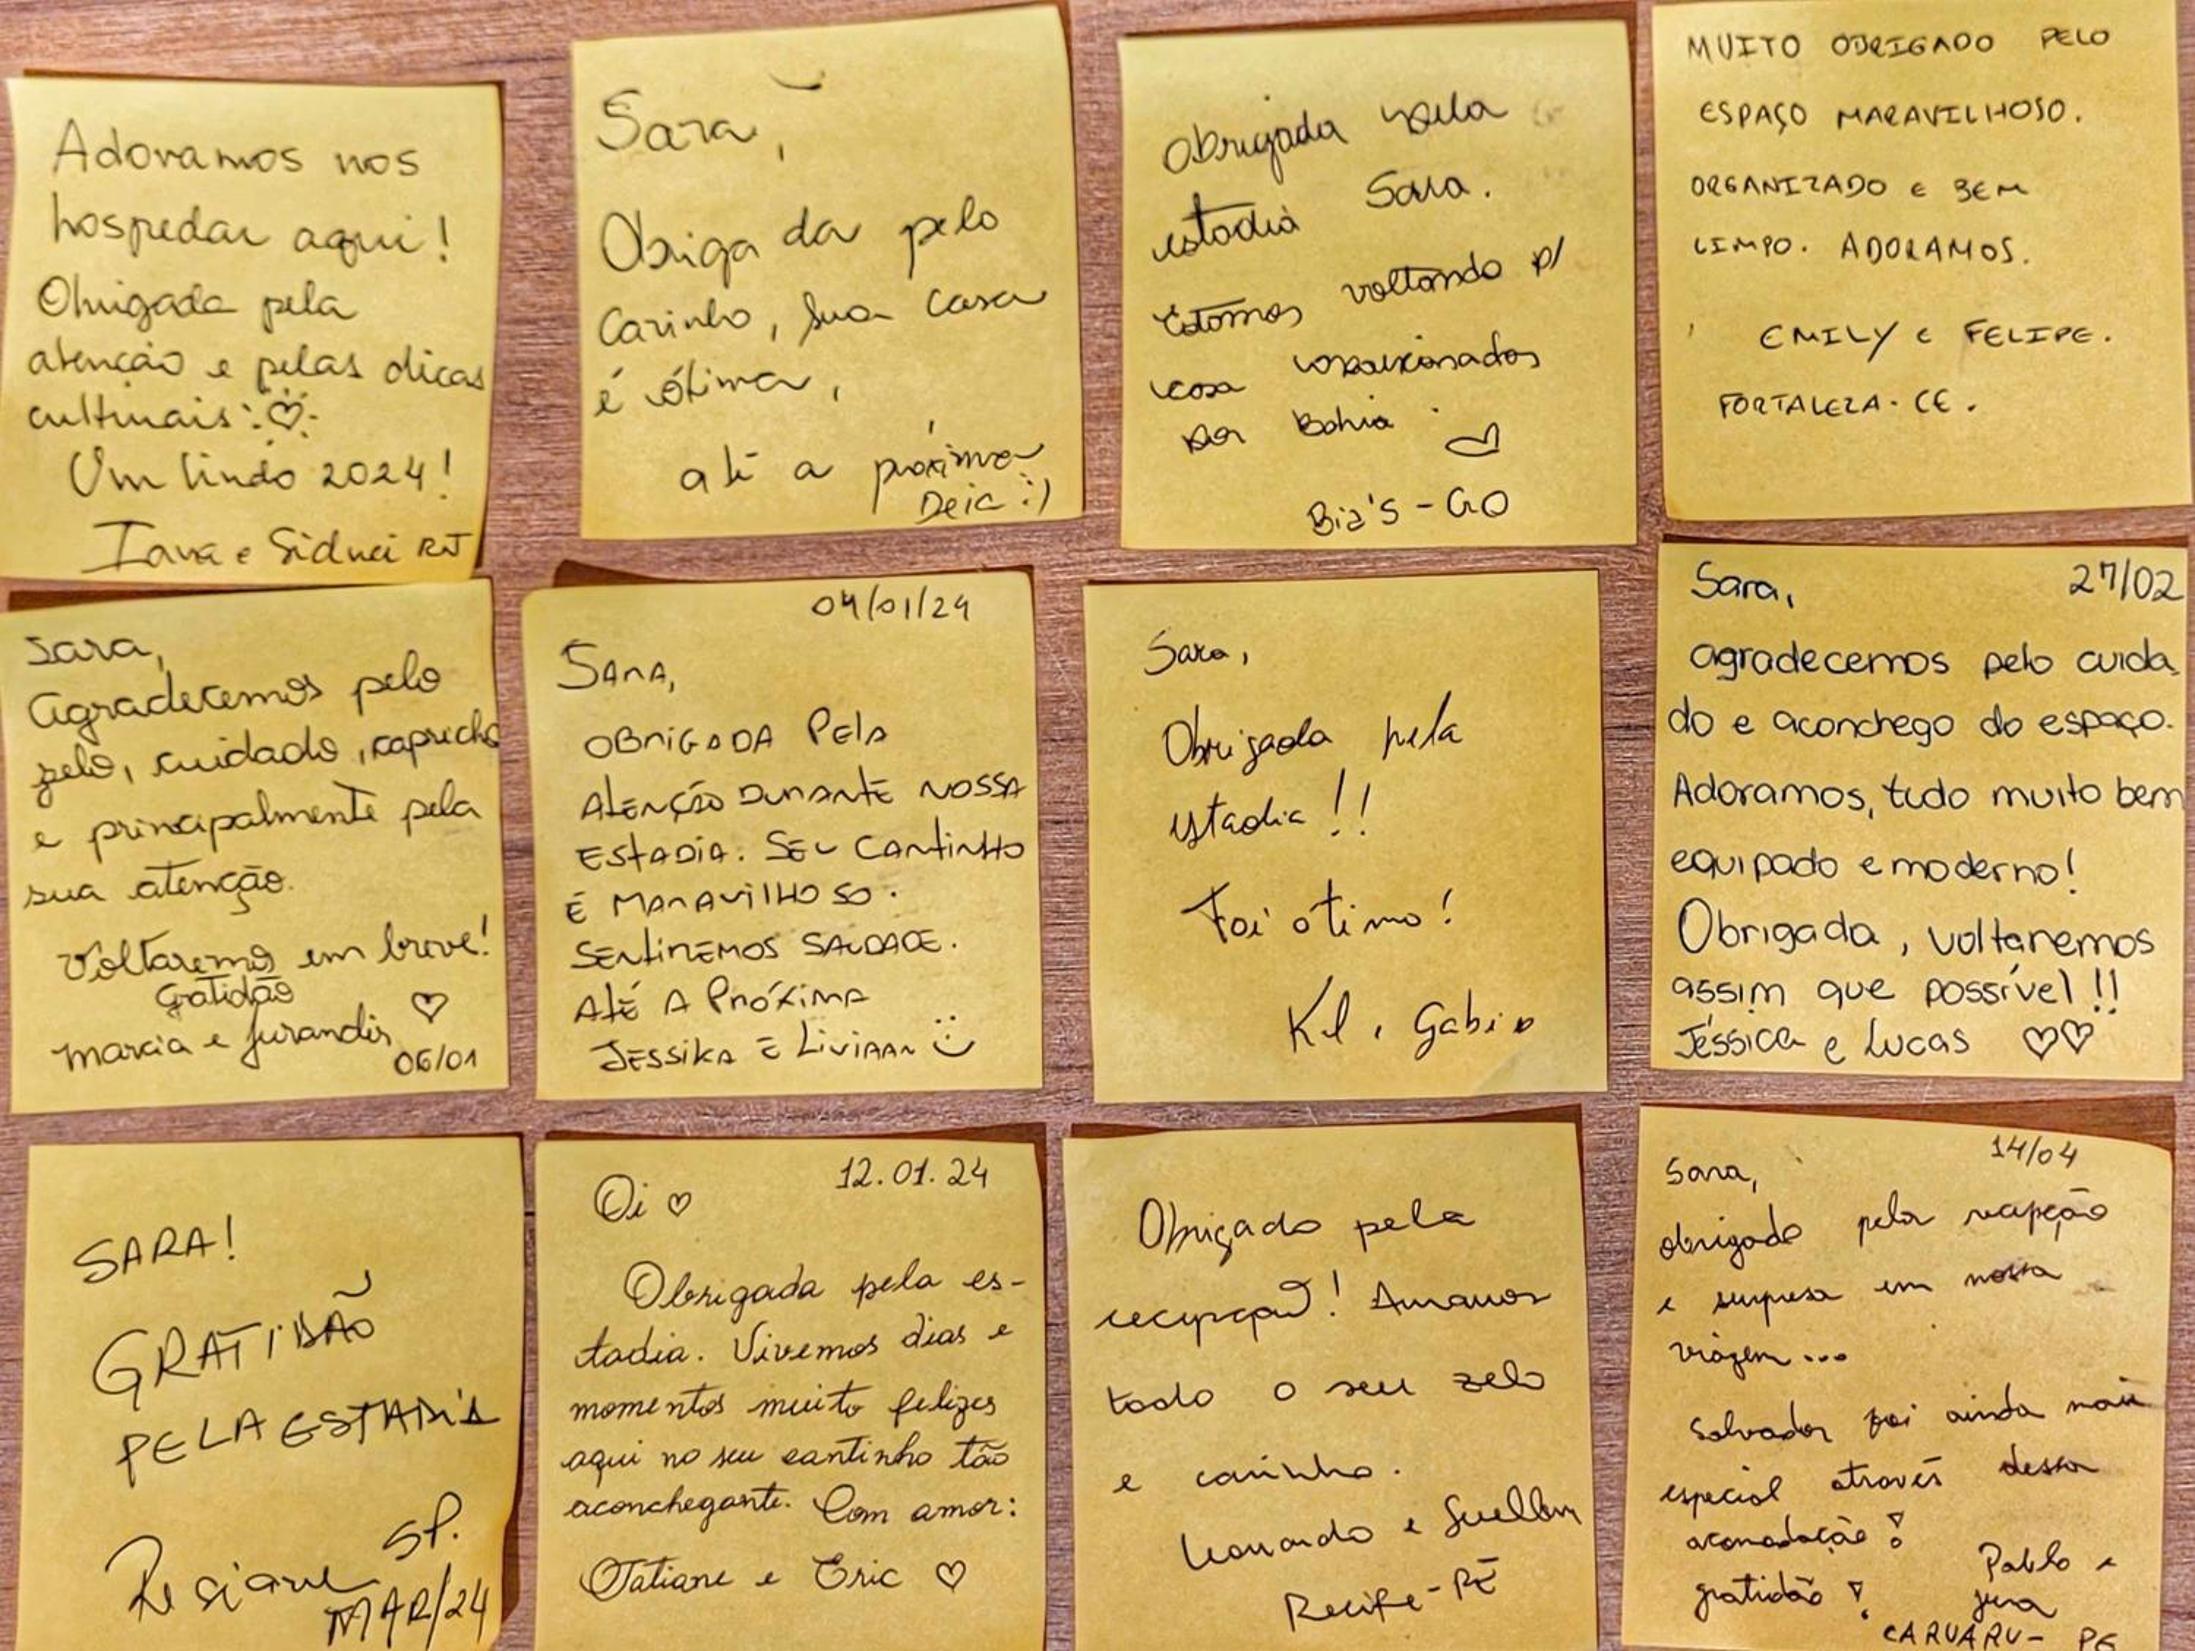 Adoramos nos
hospedar aqui!
Obrigada pela
atenção e pelas dicas
culturais
Um lindo 2024!
e Sidnei RJ
Sara,
Obrigada pelo
carinho, sua casa
é ótima,
até a próxima
Deia :)
Obrigada pela
estadia Sara.
Estamos voltando p/
casa
por Bahia
Bia's - GO
MUITO OBRIGADO PELO
ESPAÇO MARAVILHOSO.
ORGANIZADO E BEM
LIMPO. ADORAMOS.
EMILY E FELIPE.
FORTALEZA - CE.
Sara,
Agradecemos pelo
zelo, cuidado, capricho
e principalmente pela
sua atenção.
Voltaremos em breve!
Gratidão
Marcia e Jurandir
06/01
04/01/24
SARA,
OBRIGADA PELA
ATENÇÃO DURANTE NOSSA
ESTADIA. SEU CANTINHO
É MARAVILHOSO.
SENTIREMOS SAUDADE.
ATÉ A PRÓXIMA
JESSIKA E LIVIAAN
Sara,
Obrigada pela
estadia!!
Foi ótimo!
Gabi
Sara, 27/02
agradecemos pelo cuida
do e aconchego do espaço.
Adoramos, tudo muito bem
equipado e moderno!
Obrigada, voltaremos
assim que possível!!
Jéssica e Lucas
SARA!
GRATIDÃO
PELA ESTADIA
SP.
MAR/24
12.01.24
Oi
Obrigada pela es-
tadia. Vivemos dias e
momentos muito felizes
aqui no seu cantinho tão
aconchegante. Com amor:
Tatiane e Eric
Obrigado pela
recepção! Amamos
todo o seu zelo
e carinho.
Leonardo e Suellen
Recife - PE
14/04
Sara,
obrigado pela recepção
e surpresa em nossa
viagem...
Salvador foi ainda mais
especial através dessa
acomodação!
gratidão!
Pablo e
CARUARU - PE